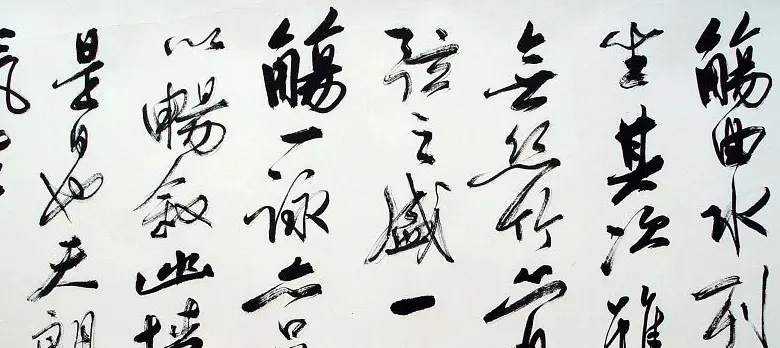 觴曲水列
坐其次雖
無絲竹管
弦之盛一
觴一詠亦足
以暢叙幽情
是日也天朗
氣